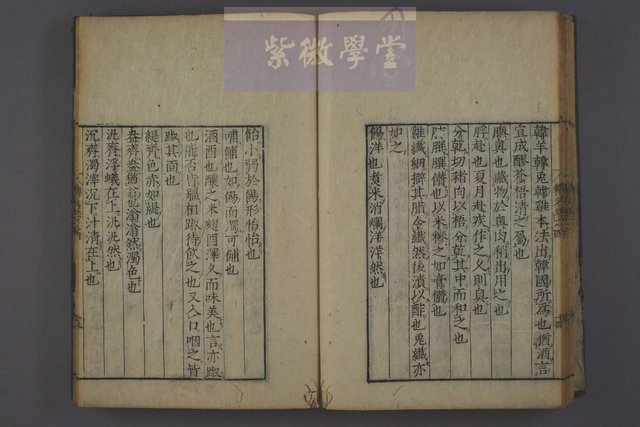 紫微學堂
韓羊韓兔韓雞本法出韓國所為也猶酒言
宜成醪蒼梧清之屬也
腴奧也藏物於奧內稍出用之也
脬赴也夏月赴疾作之久則臭也
分乾切豬肉以梧分乾其中而和之也
肺䐿䐿饡也以米糝之如膏饡也
雞纖細擗其腊令纖然後漬以酢也兎纖亦
如之
餳洋也煮米消爛洋洋然也
飴小弱於餳形怡怡也
哺餔也如餳而濁可餔也
酒酉也釀之米麴酉澤久而味美也言亦踧
也能否皆彊相踧待飲之也又入口咽之皆
踧其面也
緹齊色赤如緹也
盎齊盎滃滃然濁色也
汎齊浮蟻在上汎汎然也
沉齊濁滓沉下汁清在上也